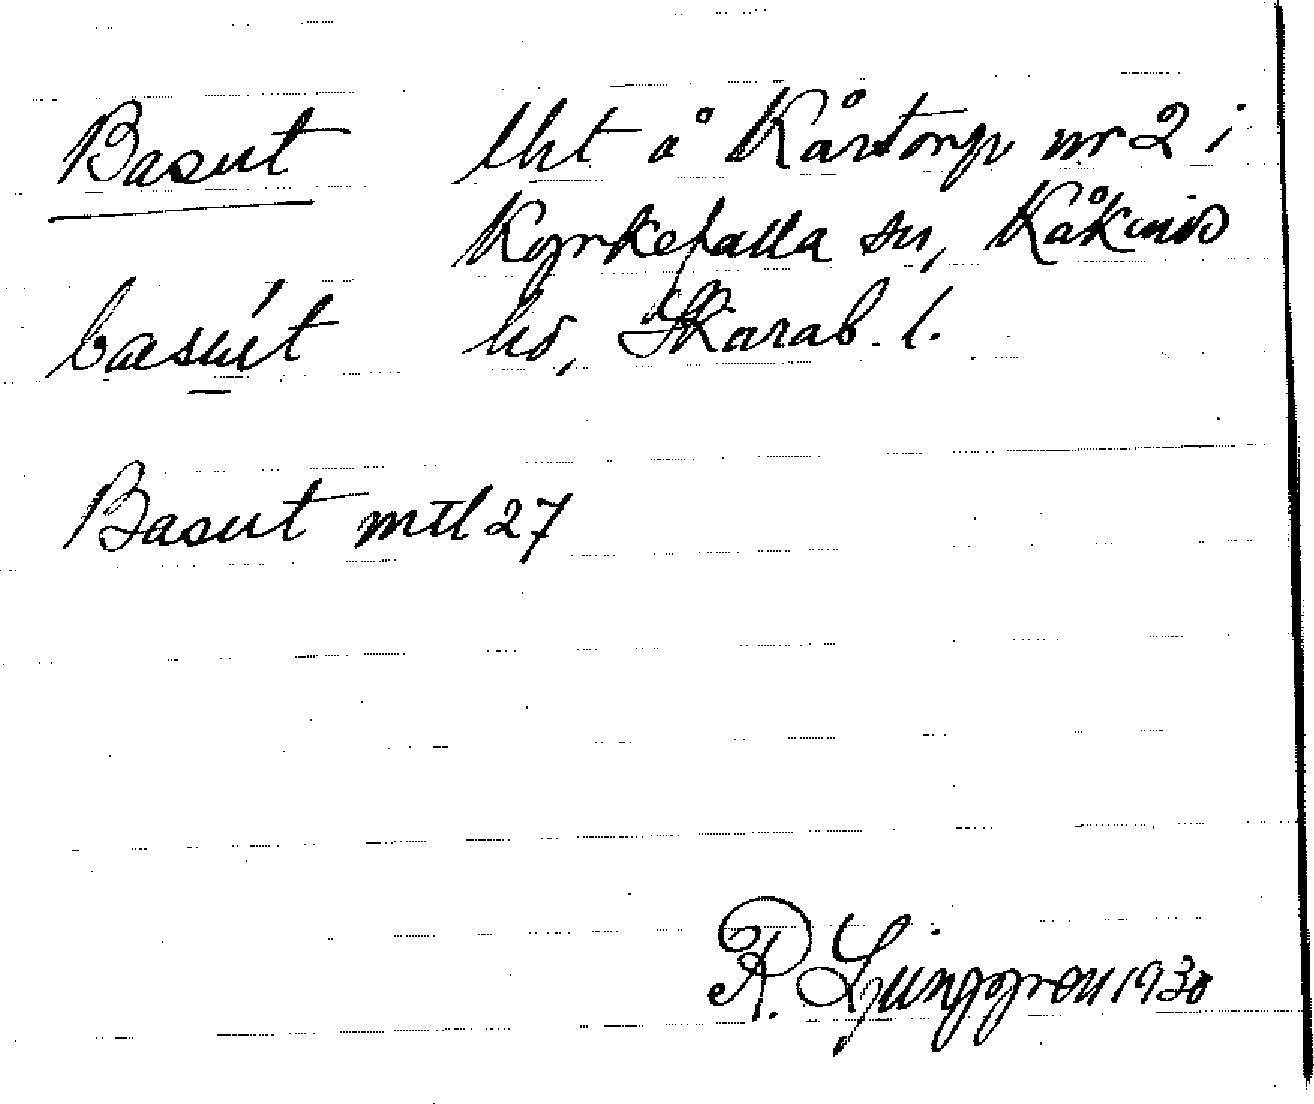 Basut lht å Kårtorp nr 2 i
Kyrkefalla sn, Kåkinds
basút hd, Skarab. l.
Basut mtl 27
R. Ljunggren 1930